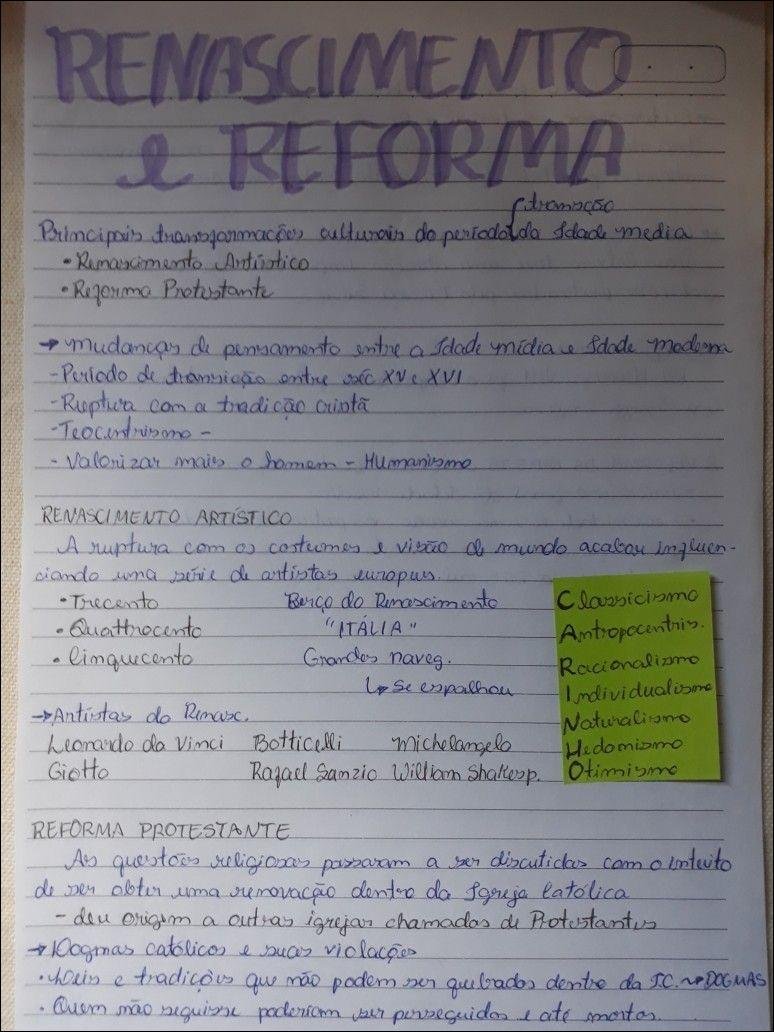 RENASCIMENTO
e REFORMA
transição
Principais transformações culturais do período da Idade media
• Renascimento Artístico
• Reforma Protestante
→ mudanças de pensamento entre a Idade mídia e Idade moderna
- Período de transição entre séc XV e XVI
- Ruptura com a tradição cristã
- Teocentrismo -
- Valorizar mais o homem - Humanismo
RENASCIMENTO ARTÍSTICO
A ruptura com os costumes e visão de mundo acabou influen-
ciando uma série de artistas europeus.
• Trecento Berço do Renascimento
• Quattrocento "ITÁLIA"
• Cinquecento Grandes naveg.
↳ Se espalhou
Classicismo
Antropocentris.
Racionalismo
Individualismo
Naturalismo
Hedonismo
Otimismo
→ Artistas do Renasc.
Leonardo da Vinci Botticelli Michelangelo
Giotto Rafael Sanzio William Shakesp.
REFORMA PROTESTANTE
As questões religiosas passaram a ser discutidas com o intuito
de ser obter uma renovação dentro da Igreja Católica
- deu origem a outras igrejas chamados de Protestantes
→ Dogmas católicos e suas violações
• Leis e tradições que não podem ser quebrados dentro da I.C. ~→ DOGMAS
• Quem não seguisse poderiam ser perseguidos e até mortos.